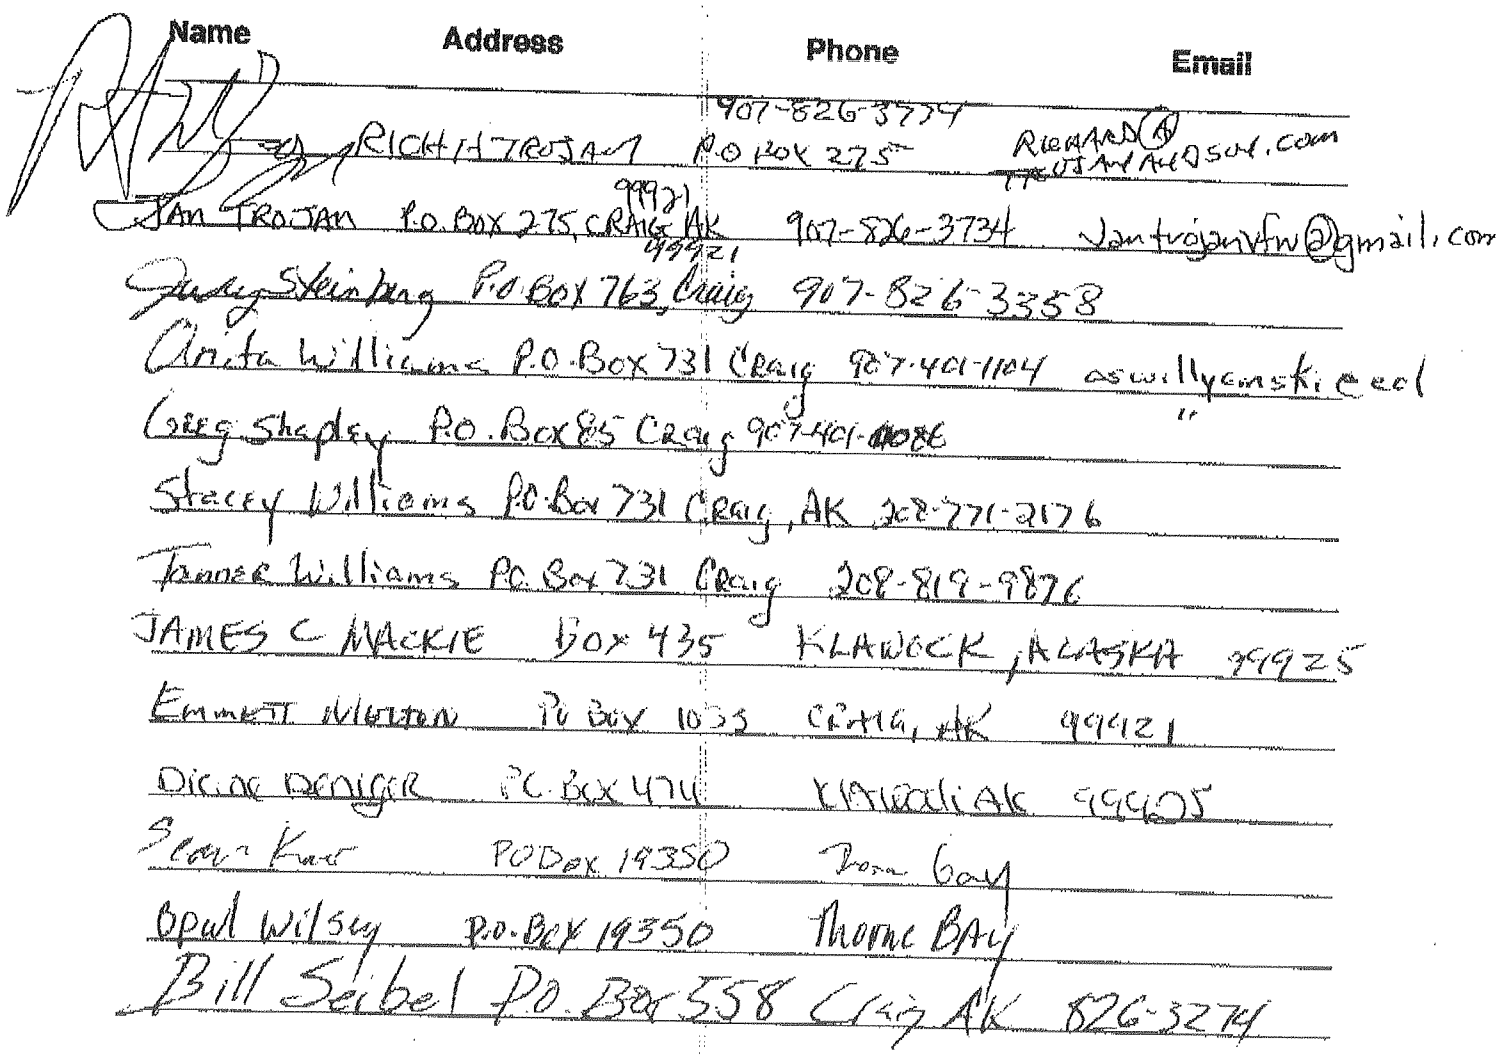 Name Address Phone Email
907-826-3734
RICH H TROJAN P.O BOX 275
JAN TROJAN P.O. Box 275, CRAIG, AK 99921 907-826-3734 Jantrojanvfw@gmail.com
Judy Steinberg P.O. Box 763, Craig 99921 907-826-3358
Anita Williams P.O. Box 731 Craig 907-401-1104 aswillyamski@aol
Greg Shapley P.O. Box 85 Craig 907-401- "
Stacey Williams P.O. Box 731 Craig, AK 208-771-2176
Tanner Williams PO Box 731 Craig 208-819-9876
JAMES C MACKIE Box 435 KLAWOCK, ALASKA 99925
Emmett PO Box CRAIG, AK 99921
Diane DENIGER PO. Box 474 AK 99925
Sean PO Box 19350 Thorne Bay
Opal Wilsey P.O. Box 19350 Thorne BAy
Bill Seibel P.O. Box 558 Craig AK 826-3274